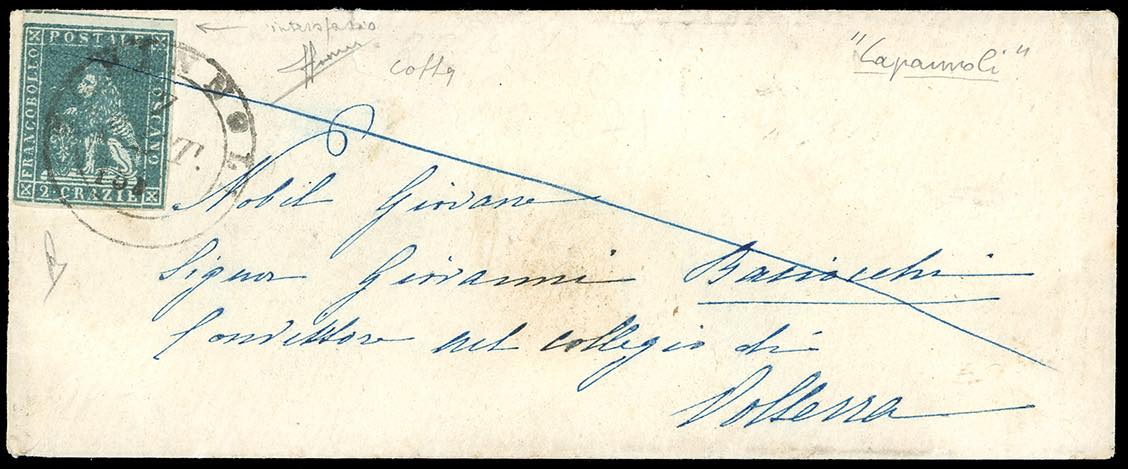 FRANCOBOLLO POSTALE TOSCANO
2·CRAZIE
27
interspazio
cotta
"Capannoli"
Nobil Giovane
Signor Giovanni Baciocchi
Convittore nel collegio di
Volterra